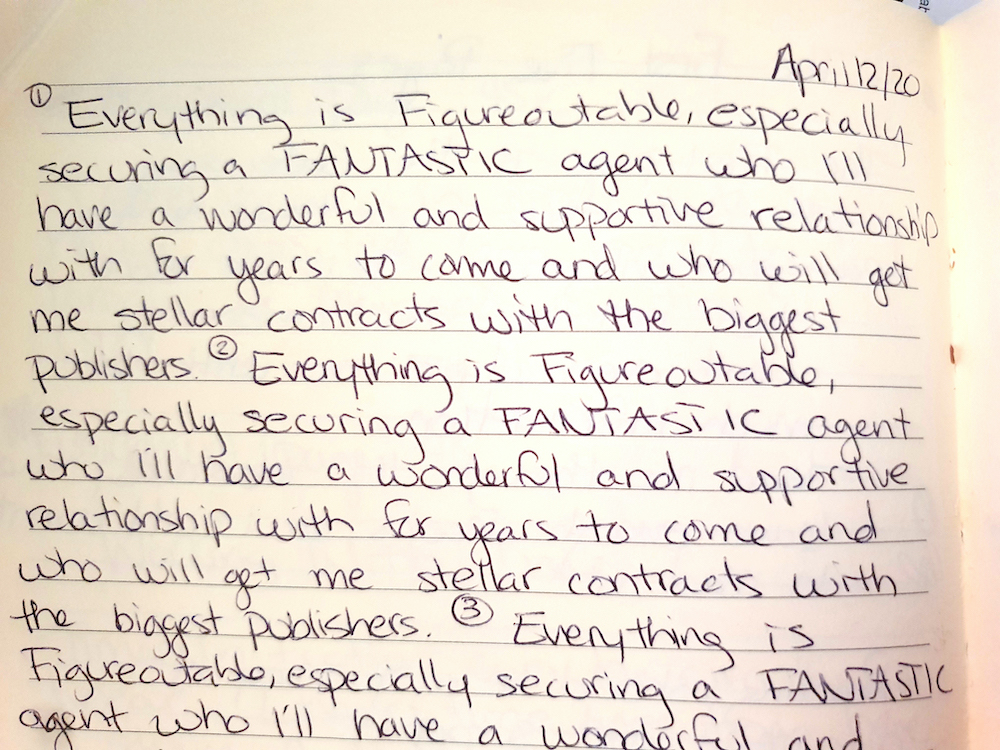 April 12/20
① Everything is Figureoutable, especially
securing a FANTASTIC agent who I'll
have a wonderful and supportive relationship
with for years to come and who will get
me stellar contracts with the biggest
publishers. ② Everything is Figureoutable,
especially securing a FANTASTIC agent
who I'll have a wonderful and supportive
relationship with for years to come and
who will get me stellar contracts with
the biggest publishers. ③ Everything is
Figureoutable, especially securing a FANTASTIC
agent who I'll have a wonderful and